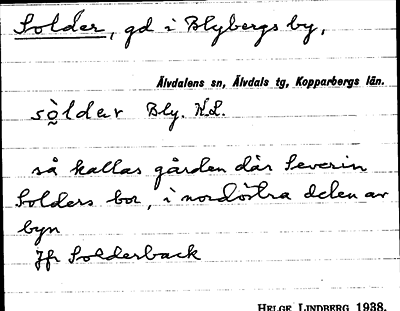 Solder, gd i Blybergs by,
Älvdalens sn, Älvdals tg, Kopparbergs län.
sò̭ldar Bly. N.L.
så kallas gården där Severin
Solders bor, i nordöstra delen av
byn
Jfr Solderback
HELGE LINDBERG 1938.